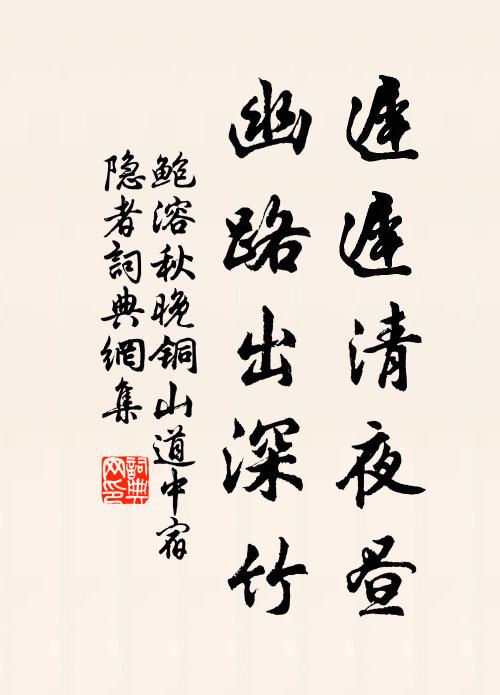 遲遲清夜昼
幽路出深竹
鲍溶秋晚铜山道中宿
隐者詞典網集
詞典
网印